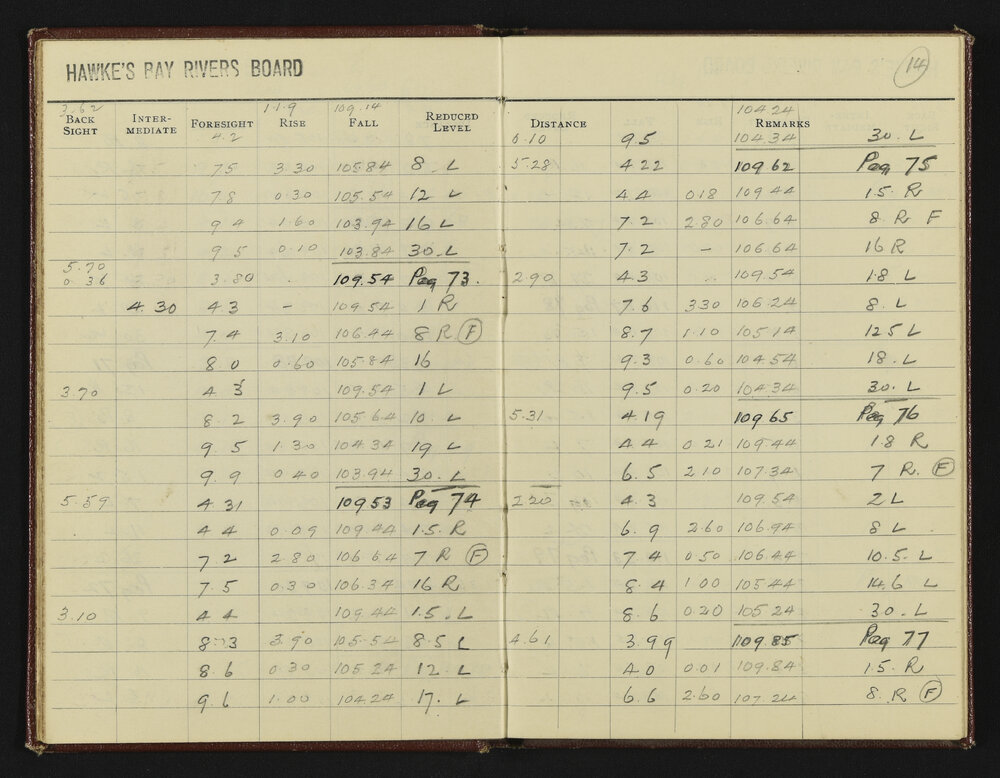 HAWKE'S BAY RIVERS BOARD
3.62 11.9 109.14
BACK SIGHT INTER-MEDIATE FORESIGHT RISE FALL REDUCED LEVEL
4.2
75 3.30 105.84 8 L
78 0.30 105.54 12 L
94 1.60 103.94 16 L
95 0.10 103.84 30.L
5.70
0.36 3.80 109.54 Peg 73.
4.30 43 – 109.54 1 R
74 3.10 106.44 8 R F
80 0.60 105.84 16
3.70 43 109.54 1 L
82 3.90 105.64 10. L
95 1.30 104.34 19 L
99 040 103.94 30.L
5.59 431 10953 Peg 74
44 0.09 109.44 1.5.R
72 2.80 106.64 7 R F
7.5 0.30 106.34 16 R
3.10 44 109.44 1.5.L
8.3 3.90 105.54 8.5 L
86 0.30 105.24 12.L
96 1.00 104.24 17. L
14
104.24
DISTANCE REMARKS
0.10 95 104.34 30.L
5.28 422 109.62 Peg 75
44 018 109.44 1.5.R
7.2 280 106.64 8.R F
7.2 – 106.64 16 R
2.90 43 109.54 1.8 L
7.6 330 106.24 8.L
8.7 1.10 105.14 12.5 L
9.3 0.60 104.54 18.L
9.5 0.20 104.34 30.L
5.31 4.19 109.65 Peg 76
44 021 109.44 1.8 R
6.5 210 107.34 7 R. F
2.20 43 109.54 2 L
6.9 2.60 106.94 8 L
74 0.50 106.44 10.5.L
8.4 1.00 105.44 14.6 L
8.6 020 105.24 30.L
4.61 3.99 109.85 Peg 77
40 0.01 109.84 1.5.R
6.6 2.60 107.24 8.R F